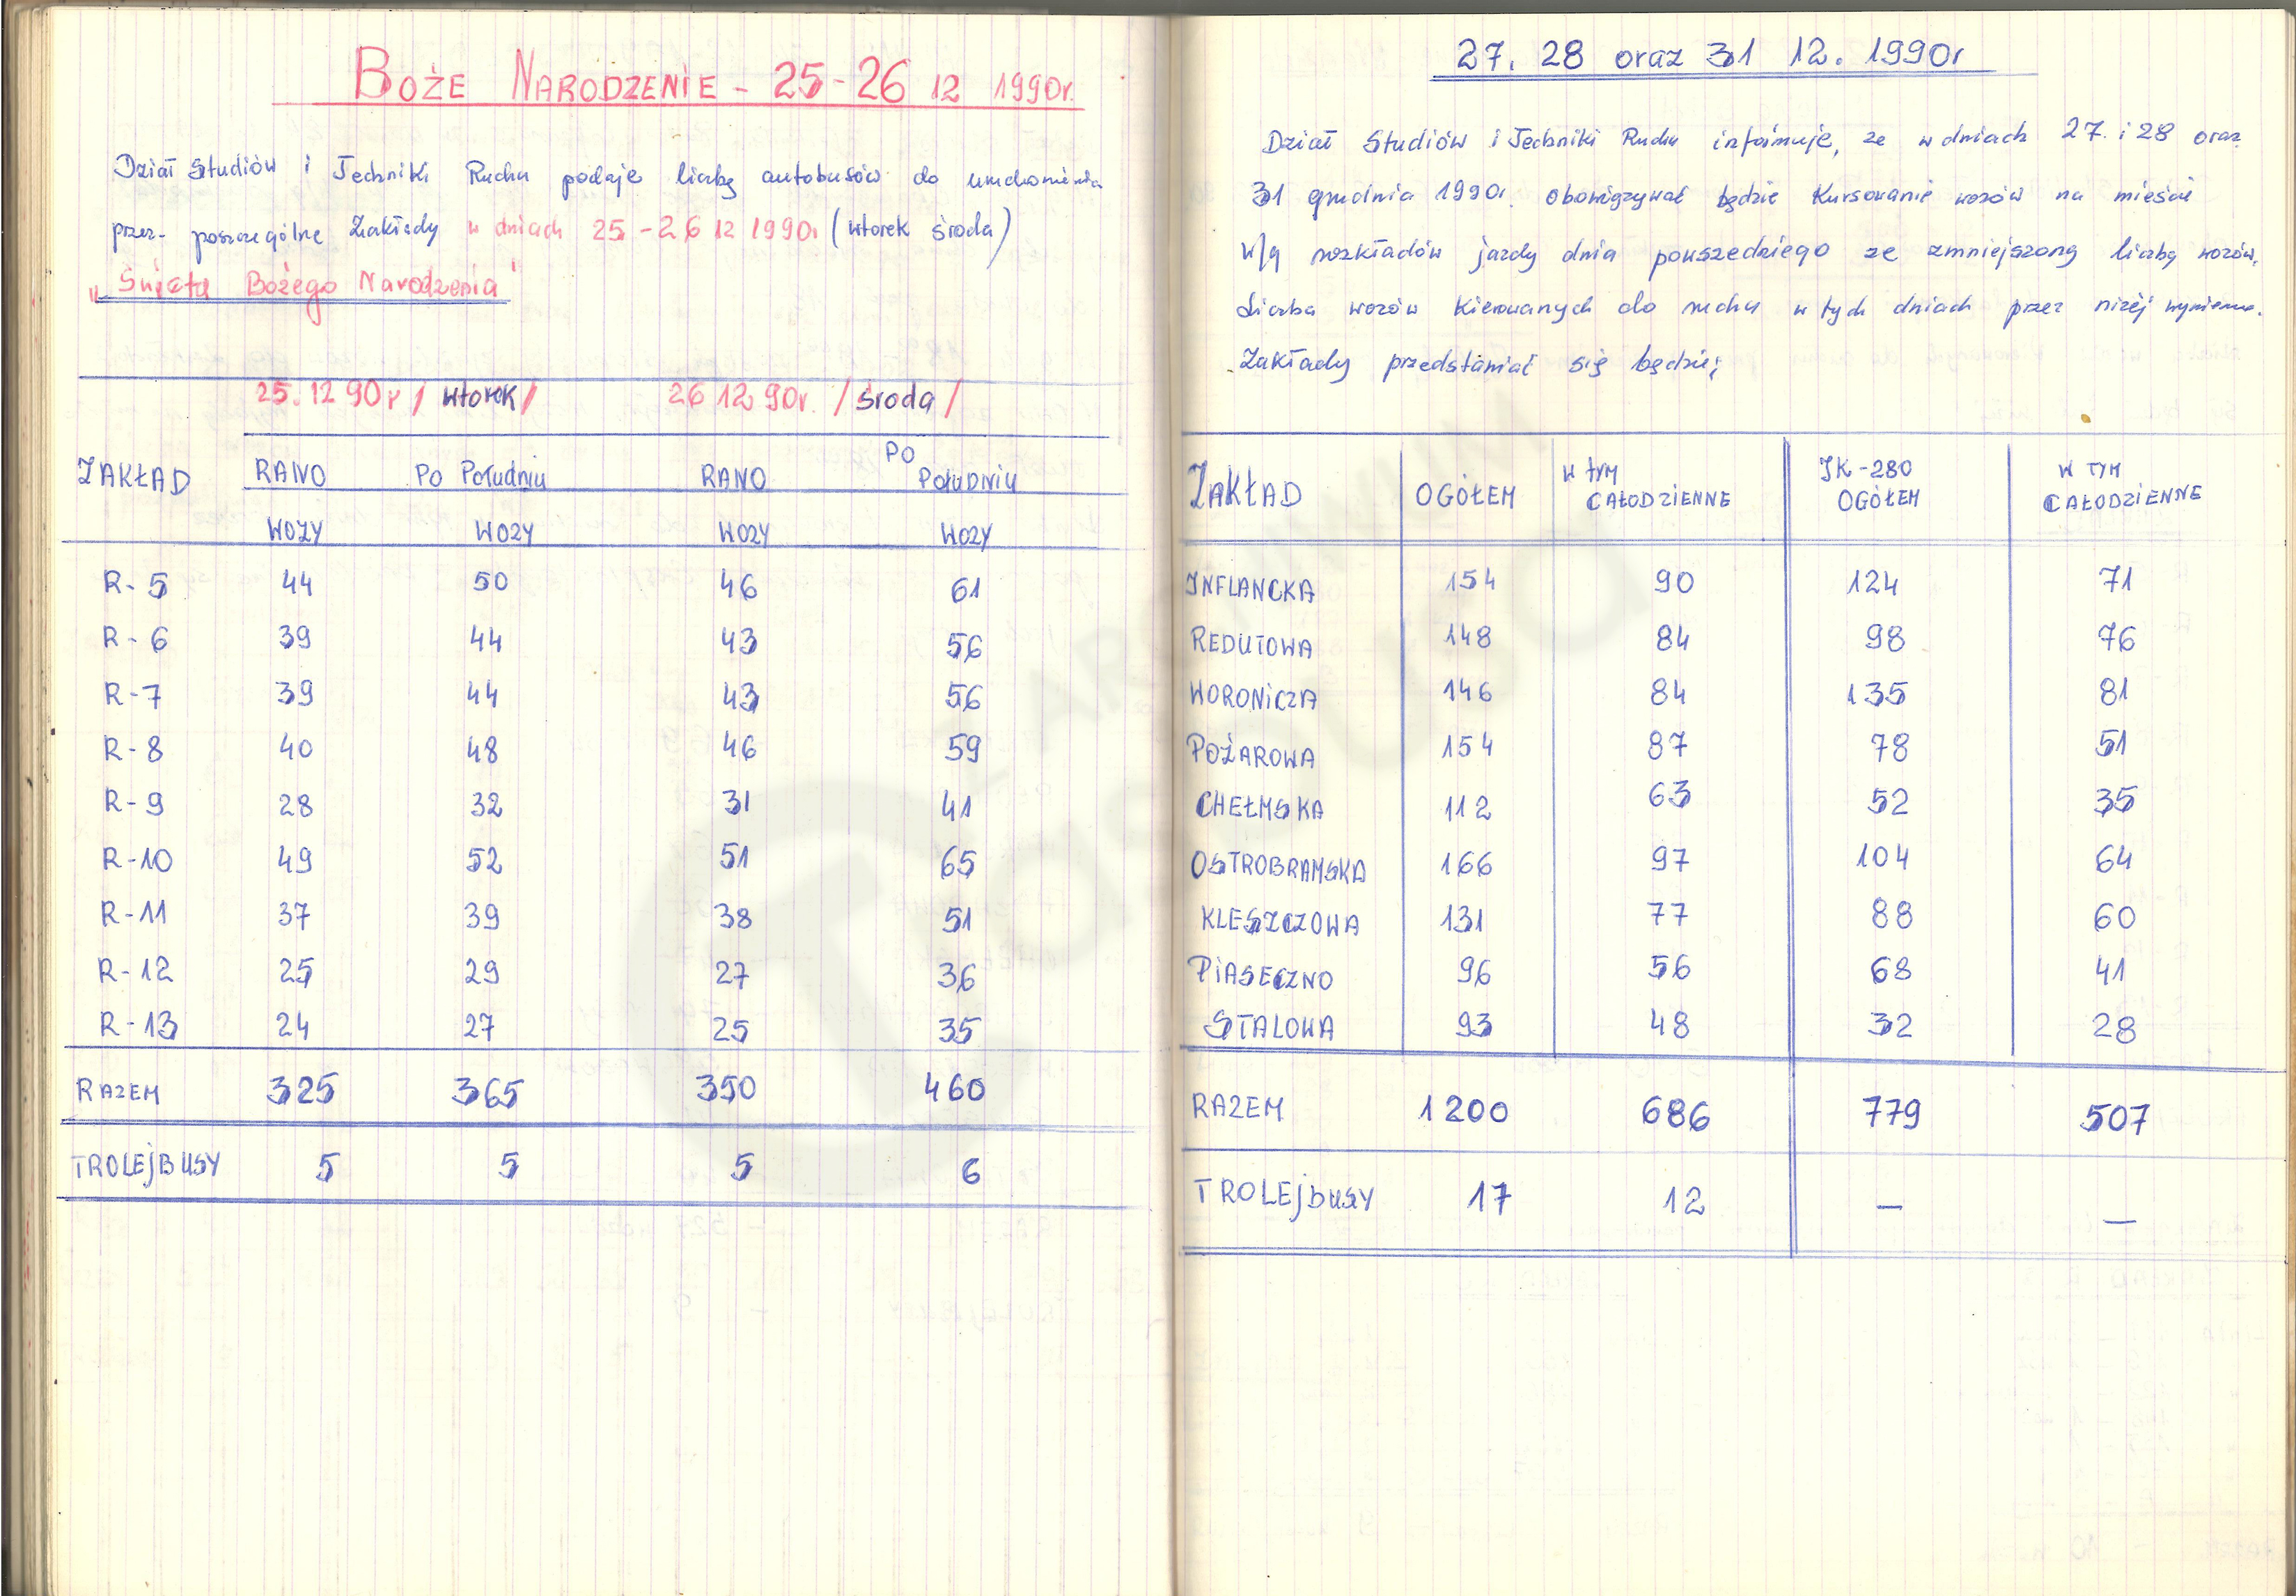 BOŻE NARODZENIE - 25-26 12 1990r.
Dział Studiów i Techniki Ruchu podaje liczbę autobusów do uruchomienia
przez poszczególne Zakłady w dniach 25-26 12 1990r (wtorek środa)
„Święta Bożego Narodzenia"
25.12 90r / wtorek / 26 12 90r. / środa /
ZAKŁAD RANO Po Południu RANO PO POŁUDNIU
WOZY WOZY WOZY WOZY
R-5 44 50 46 61
R-6 39 44 43 56
R-7 39 44 43 56
R-8 40 48 46 59
R-9 28 32 31 41
R-10 49 52 51 65
R-11 37 39 38 51
R-12 25 29 27 36
R-13 24 27 25 35
RAZEM 325 365 350 460
TROLEJBUSY 5 5 5 6
27. 28 oraz 31 12. 1990r
Dział Studiów i Techniki Ruchu informuje, że w dniach 27. i 28 oraz
31 grudnia 1990r. obowiązywać będzie kursowanie wozów na mieście
w/g rozkładów jazdy dnia powszedniego ze zmniejszoną liczbą wozów.
Liczba wozów kierowanych do ruchu w tych dniach przez niżej wymienio.
Zakłady przedstawiać się będzie;
ZAKŁAD OGÓŁEM W TYM CAŁODZIENNE JK-280 OGÓŁEM W TYM CAŁODZIENNE
INFLANCKA 154 90 124 71
REDUTOWA 148 84 98 76
WORONICZA 146 84 135 81
POŻAROWA 154 87 78 51
CHEŁMSKA 112 63 52 35
OSTROBRAMSKA 166 97 104 64
KLESZCZOWA 131 77 88 60
PIASECZNO 96 56 68 41
STALOWA 93 48 32 28
RAZEM 1200 686 779 507
TROLEJbUSY 17 12 — —